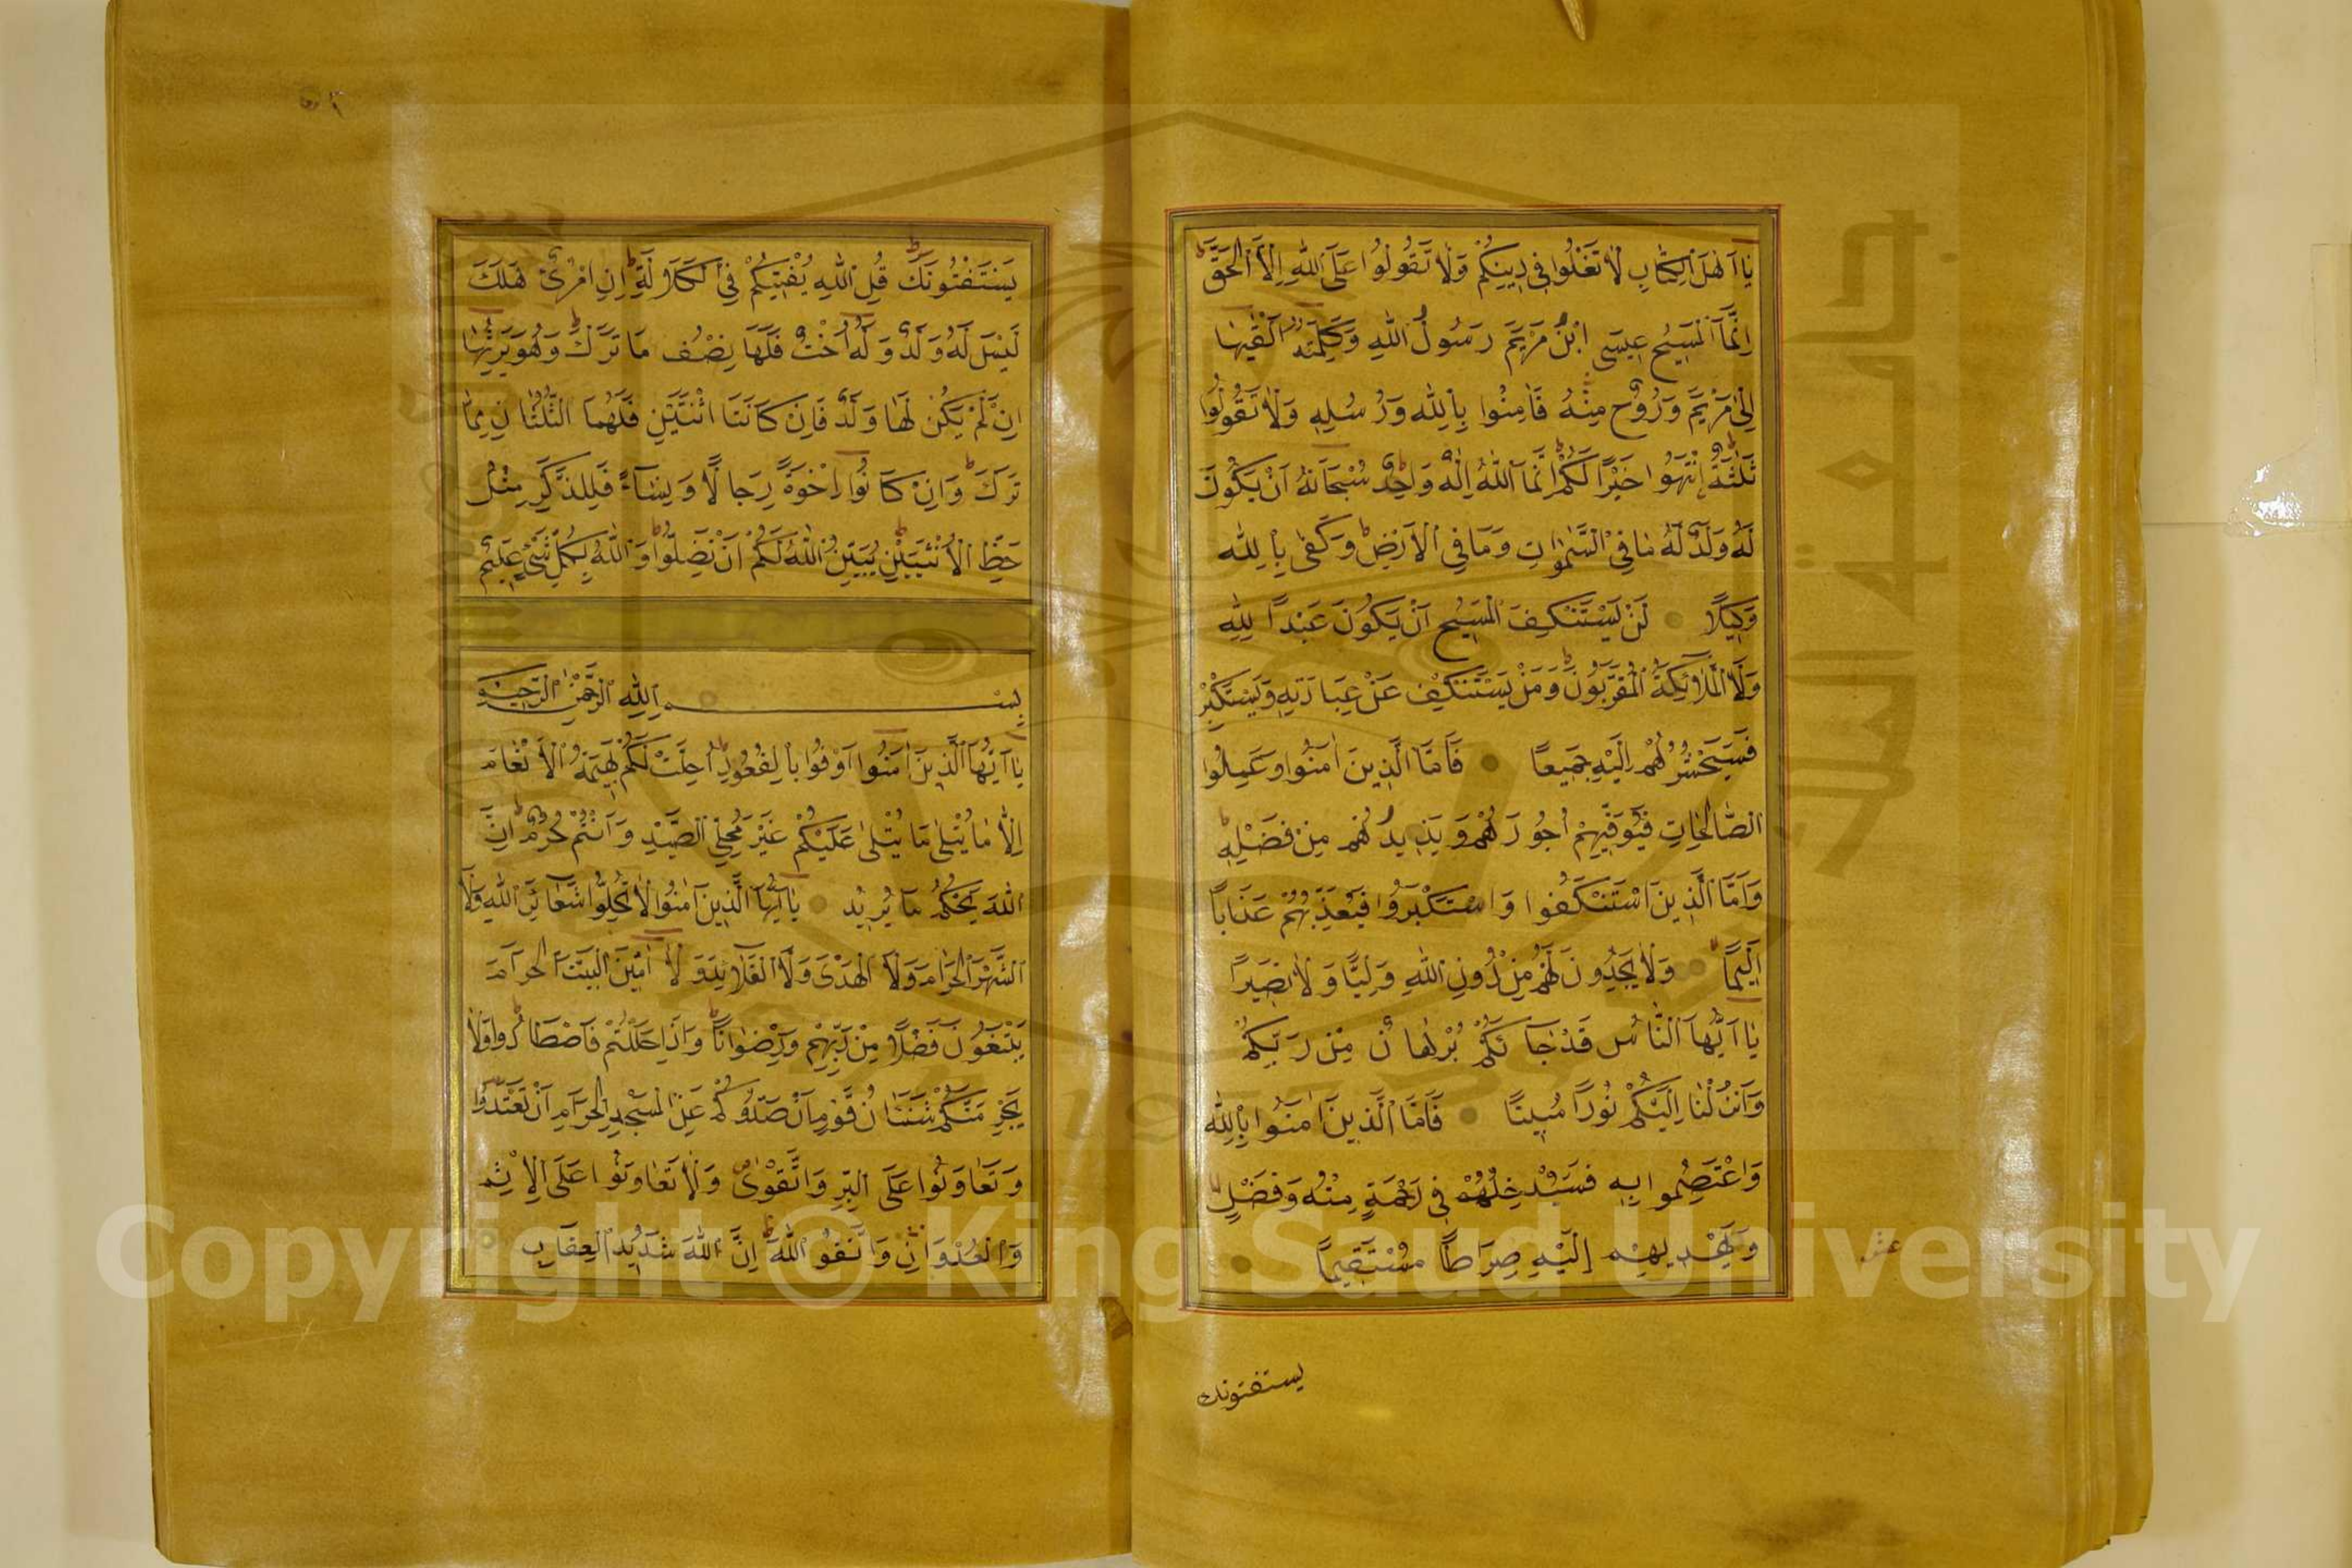 يَا اَهْلَ الْكِتَابِ لَا تَغْلُوا فِي دِينِكُمْ وَلَا تَقُولُوا عَلَى اللهِ اِلَّا الْحَقَّ
اِنَّمَا الْمَسِيحُ عِيسَى ابْنُ مَرْيَمَ رَسُولُ اللهِ وَكَلِمَتُهُ اَلْقٰيهَا
اِلٰى مَرْيَمَ وَرُوحٌ مِنْهُ فَاٰمِنُوا بِاللهِ وَرُسُلِهِ وَلَا تَقُولُوا
ثَلٰثَةٌ اِنْتَهُوا خَيْرًا لَكُمْ اِنَّمَا اللهُ اِلٰهٌ وَاحِدٌ سُبْحَانَهُ اَنْ يَكُونَ
لَهُ وَلَدٌ لَهُ مَا فِي السَّمٰوَاتِ وَمَا فِي الْاَرْضِ وَكَفٰى بِاللهِ
وَكِيلًا لَنْ يَسْتَنْكِفَ الْمَسِيحُ اَنْ يَكُونَ عَبْدًا لِلّٰهِ
وَلَا الْمَلَائِكَةُ الْمُقَرَّبُونَ وَمَنْ يَسْتَنْكِفْ عَنْ عِبَادَتِهِ وَيَسْتَكْبِرْ
فَسَيَحْشُرُهُمْ اِلَيْهِ جَمِيعًا فَاَمَّا الَّذِينَ اٰمَنُوا وَعَمِلُوا
الصَّالِحَاتِ فَيُوَفِّيهِمْ اُجُورَهُمْ وَيَزِيدُهُمْ مِنْ فَضْلِهِ
وَاَمَّا الَّذِينَ اسْتَنْكَفُوا وَاسْتَكْبَرُوا فَيُعَذِّبُهُمْ عَذَابًا
اَلِيمًا وَلَا يَجِدُونَ لَهُمْ مِنْ دُونِ اللهِ وَلِيًّا وَلَا نَصِيرًا
يَا اَيُّهَا النَّاسُ قَدْ جَاءَكُمْ بُرْهَانٌ مِنْ رَبِّكُمْ
وَاَنْزَلْنَا اِلَيْكُمْ نُورًا مُبِينًا فَاَمَّا الَّذِينَ اٰمَنُوا بِاللهِ
وَاعْتَصَمُوا بِهِ فَسَيُدْخِلُهُمْ فِي رَحْمَةٍ مِنْهُ وَفَضْلٍ
وَيَهْدِيهِمْ اِلَيْهِ صِرَاطًا مُسْتَقِيمًا
عشر
يستفتونك
يَسْتَفْتُونَكَ قُلِ اللهُ يُفْتِيكُمْ فِي الْكَلَالَةِ اِنِ امْرُؤٌ هَلَكَ
لَيْسَ لَهُ وَلَدٌ وَلَهُ اُخْتٌ فَلَهَا نِصْفُ مَا تَرَكَ وَهُوَ يَرِثُهَا
اِنْ لَمْ يَكُنْ لَهَا وَلَدٌ فَاِنْ كَانَتَا اثْنَتَيْنِ فَلَهُمَا الثُّلُثَانِ مِمَّا
تَرَكَ وَاِنْ كَانُوا اِخْوَةً رِجَالًا وَنِسَاءً فَلِلذَّكَرِ مِثْلُ
حَظِّ الْاُنْثَيَيْنِ يُبَيِّنُ اللهُ لَكُمْ اَنْ تَضِلُّوا وَاللهُ بِكُلِّ شَيْءٍ عَلِيمٌ
بِسْمِ اللهِ الرَّحْمٰنِ الرَّحِيمِ
يَا اَيُّهَا الَّذِينَ اٰمَنُوا اَوْفُوا بِالْعُقُودِ اُحِلَّتْ لَكُمْ بَهِيمَةُ الْاَنْعَامِ
اِلَّا مَا يُتْلٰى مَا يُتْلٰى عَلَيْكُمْ غَيْرَ مُحِلِّي الصَّيْدِ وَاَنْتُمْ حُرُمٌ اِنَّ
اللهَ يَحْكُمُ مَا يُرِيدُ يَا اَيُّهَا الَّذِينَ اٰمَنُوا لَا تُحِلُّوا شَعَائِرَ اللهِ وَلَا
الشَّهْرَ الْحَرَامَ وَلَا الْهَدْيَ وَلَا الْقَلَائِدَ وَلَا اٰمِّينَ الْبَيْتَ الْحَرَامَ
يَبْتَغُونَ فَضْلًا مِنْ رَبِّهِمْ وَرِضْوَانًا وَاِذَا حَلَلْتُمْ فَاصْطَادُوا وَلَا
يَجْرِمَنَّكُمْ شَنَاٰنُ قَوْمٍ اَنْ صَدُّوكُمْ عَنِ الْمَسْجِدِ الْحَرَامِ اَنْ تَعْتَدُوا
وَتَعَاوَنُوا عَلَى الْبِرِّ وَالتَّقْوٰى وَلَا تَعَاوَنُوا عَلَى الْاِثْمِ
وَالْعُدْوَانِ وَاتَّقُوا اللهَ اِنَّ اللهَ شَدِيدُ الْعِقَابِ
Copyright © King Saud University